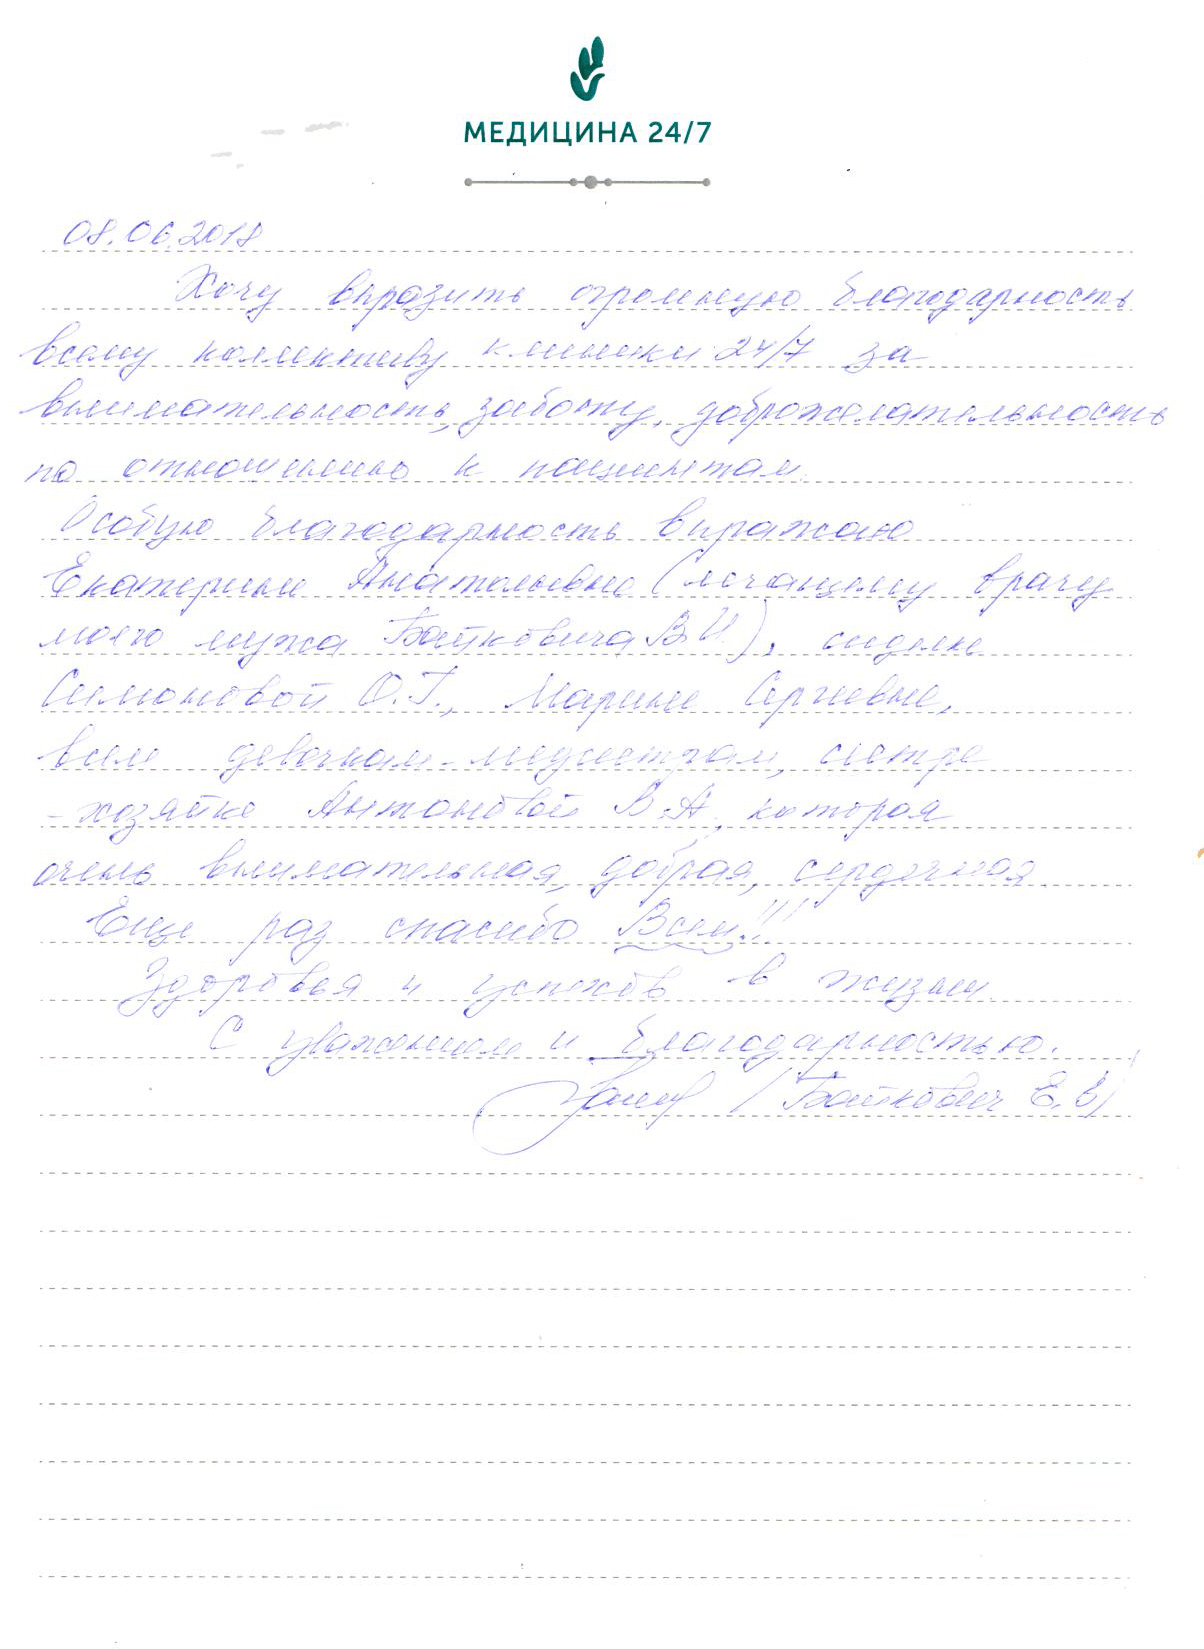 МЕДИЦИНА 24/7
08.06.2018
Хочу выразить огромную благодарность
всему коллективу клиники 24/7 за
внимательность, заботу, доброжелательность
по отношению к пациентам.
Особую благодарность выражаю
Екатерине Анатольевне (лечащему врачу
моего мужа Байковича В.И.), сиделке
Симоновой О.Г., Марине Сергеевне,
всем девочкам-медсестрам, сестре
-хозяйке Антоновой В.А., которая
очень внимательная, добрая, сердечная.
Еще раз спасибо Всем!!!
Здоровья и успехов в жизни.
С уважением и благодарностью.
/Байкович Е.Е/